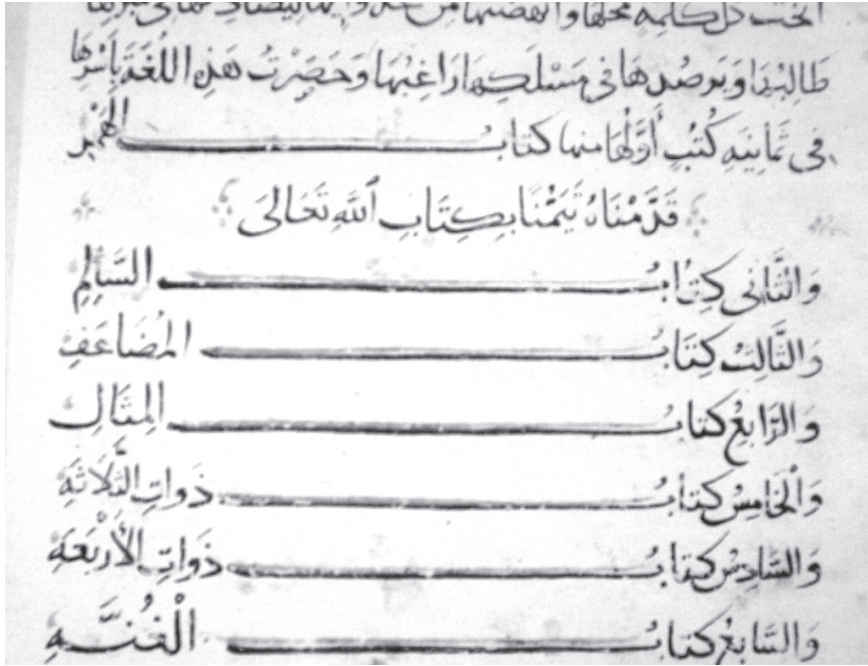 كل كلمة محلها وانهضتها من
طَالِبُهَا وَيَرصُدهَا فى مَسْلَكِهَا رَاغِبُهَا وَحَصَرْتُ هَذِهِ اللُّغَةَ بِاَسْرِهَا
فى ثَمَانِيَهِ كُتُبٍ أَوَّلُهَا منها كتابُ الهَمْز
قَدَّمْنَاهُ تَيَمُّنًا بِكِتَابِ ٱللهِ تَعَالىَ
وَالثَّانى كِتَابُ السَّالِمِ
وَالثَّالِثُ كِتَابُ المُضَاعَفِ
وَالرَّابِعُ كتابُ المِثَالِ
وَالْخَامِسُ كتابُ ذَواتِ الثَّلَاثَةِ
وَالسَّادِسُ كتابُ ذَوَاتِ الْأَرْبَعَةِ
وَالسَّابعُ كتابُ الْغُنَّــةِ